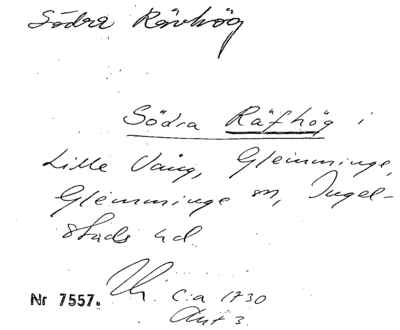 Södra Rävhög
Södra Räfhög i
Lille Vång, Glemminge,
Glemminge sn, Ingel-
stads hd
Nr 7557. ca 1730
Akt 3.